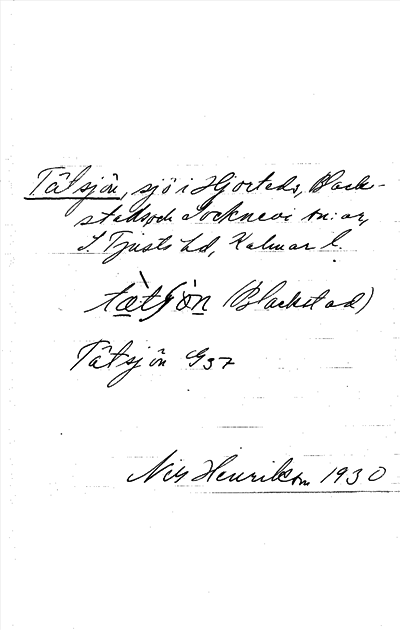 Tätsjön, sjö i Hjorteds, Black-
stads och Locknevi sn:ar,
S. Tjusts hd, Kalmar l.
tætʃòn (Blackstad)
Tätsjön G37
Nils Henrikson 1930